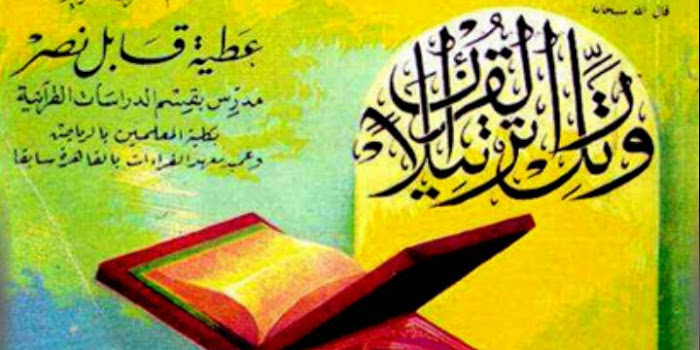 قال الله سبحانه
ورتل القرآن ترتيلا
عطية قابل نصر
مدرس بقسم الدراسات القرآنية
بكلية المعلمين بالرياض
وعميد معهد القراءات بالقاهرة سابقا